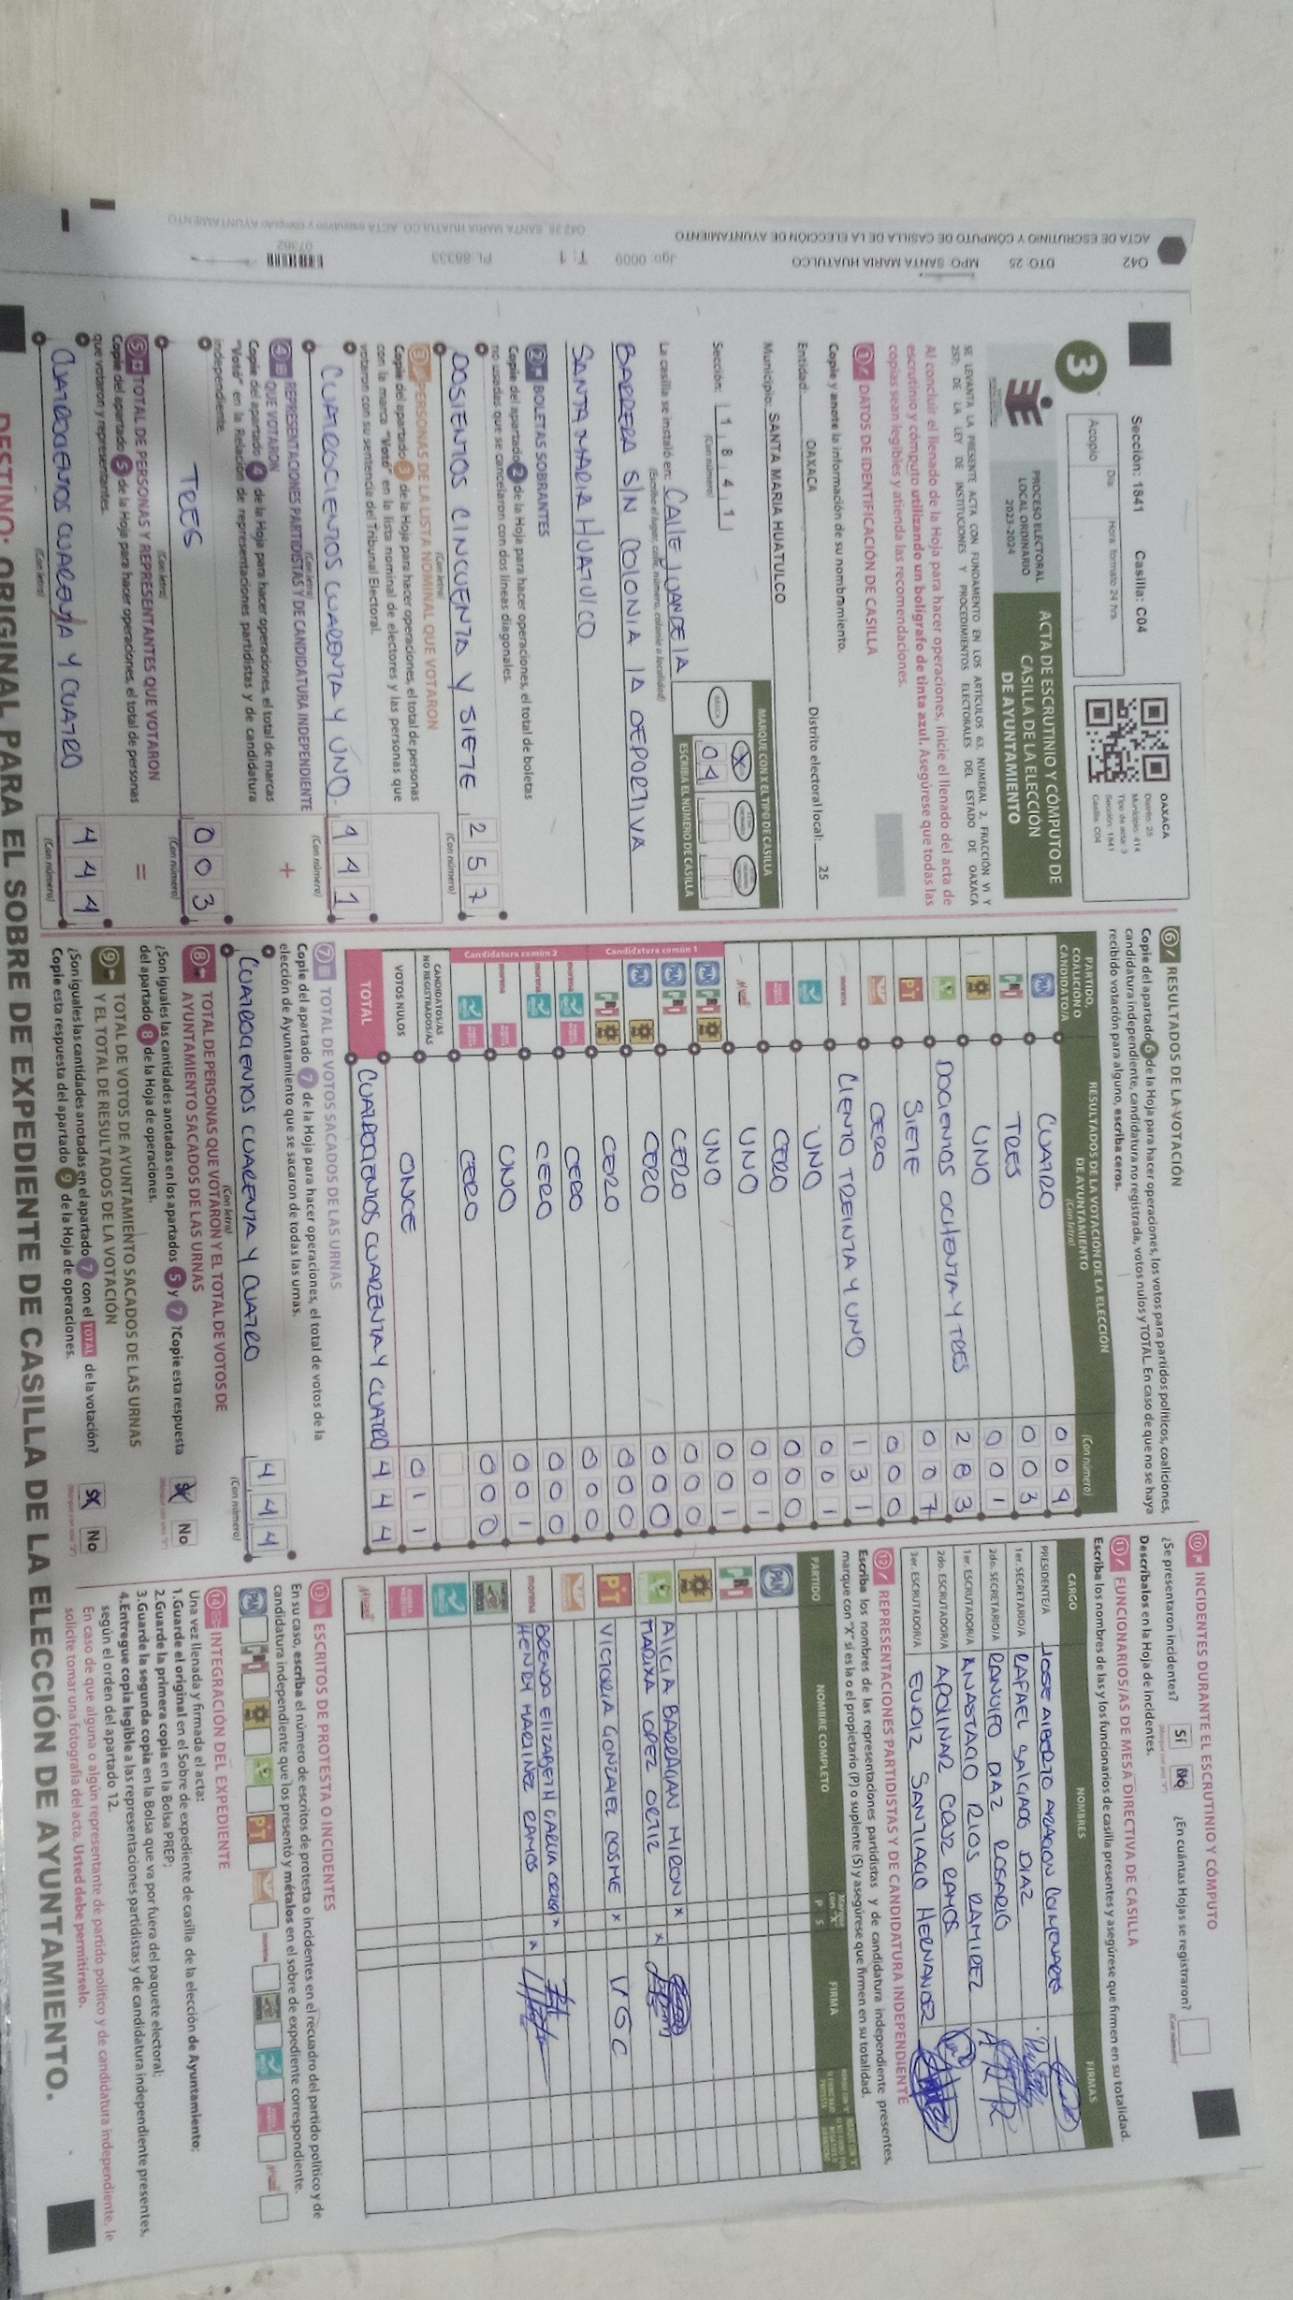 042
DTO: 25
MPO: SANTA MARIA HUATULCO
Jgo: 0009
T: 1
PL:86333
07362
ACTA DE ESCRUTINIO Y CÓMPUTO DE CASILLA DE LA ELECCIÓN DE AYUNTAMIENTO
Sección: 1841 Casilla: C04
3
Acopio
Día Hora: formato 24 hrs
OAXACA
Distrito: 25
Municipio: 414
Tipo de acta: 3
Sección: 1841
Casilla: C04
PROCESO ELECTORAL
LOCAL ORDINARIO
2023-2024
ACTA DE ESCRUTINIO Y CÓMPUTO DE
CASILLA DE LA ELECCIÓN
DE AYUNTAMIENTO
SE LEVANTA LA PRESENTE ACTA CON FUNDAMENTO EN LOS ARTÍCULOS 63, NUMERAL 2, FRACCIÓN VI Y
257; DE LA LEY DE INSTITUCIONES Y PROCEDIMIENTOS ELECTORALES DEL ESTADO DE OAXACA
Al concluir el llenado de la Hoja para hacer operaciones, inicie el llenado del acta de
escrutinio y cómputo utilizando un bolígrafo de tinta azul. Asegúrese que todas las
copias sean legibles y atienda las recomendaciones.
1 DATOS DE IDENTIFICACIÓN DE CASILLA
Copie y anote la información de su nombramiento.
Entidad: OAXACA Distrito electoral local: 25
Municipio: SANTA MARIA HUATULCO
Sección: 1 8 4 1
(Con número)
MARQUE CON X EL TIPO DE CASILLA
X
ESCRIBA EL NÚMERO DE CASILLA
04
La casilla se instaló en: CALLE JUAN DE LA
(Escriba el lugar, calle, número, colonia o localidad)
BARRERA S/N COLONIA LA DEPORTIVA
SANTA MARIA HUATULCO
2 BOLETAS SOBRANTES
Copie del apartado 2 de la Hoja para hacer operaciones, el total de boletas
no usadas que se cancelaron con dos líneas diagonales.
DOSIENTOS CINCUENTA Y SIETE 2 5 7
(Con letra) (Con número)
3 PERSONAS DE LA LISTA NOMINAL QUE VOTARON
Copie del apartado 3 de la Hoja para hacer operaciones, el total de personas
con la marca "Votó" en la lista nominal de electores y las personas que
votaron con su sentencia del Tribunal Electoral.
CUATROCIENTOS CUARENTA Y UNO. 4 4 1
(Con letra) (Con número)
4 REPRESENTACIONES PARTIDISTAS Y DE CANDIDATURA INDEPENDIENTE
QUE VOTARON
+
Copie del apartado 4 de la Hoja para hacer operaciones, el total de marcas
"Votó" en la Relación de representaciones partidistas y de candidatura
independiente.
TRES 0 0 3
(Con letra) (Con número)
5 TOTAL DE PERSONAS Y REPRESENTANTES QUE VOTARON
=
Copie del apartado 5 de la Hoja para hacer operaciones, el total de personas
que votaron y representantes.
CUATROCIENTOS CUARENTA Y CUATRO 4 4 4
(Con letra) (Con número)
6 RESULTADOS DE LA VOTACIÓN
Copie del apartado 6 de la Hoja para hacer operaciones, los votos para partidos políticos, coaliciones,
candidatura independiente, candidatura no registrada, votos nulos y TOTAL. En caso de que no se haya
recibido votación para alguno, escriba ceros.
PARTIDO,
COALICIÓN O
CANDIDATO/A
RESULTADOS DE LA VOTACIÓN DE LA ELECCIÓN
DE AYUNTAMIENTO
(Con letra)
(Con número)
PAN CUATRO 0 0 4
PRI TRES 0 0 3
UNO 0 0 1
DOCIENTOS OCHENTA Y TRES 2 8 3
PT SIETE 0 0 7
CERO 0 0 0
morena CIENTO TREINTA Y UNO 1 3 1
UNO 0 0 1
CERO 0 0 0
UNO 0 0 1
Candidatura común 1
UNO 0 0 1
CERO 0 0 0
CERO 0 0 0
CERO 0 0 0
Candidatura común 2
CERO 0 0 0
CERO 0 0 0
UNO 0 0 1
CERO 0 0 0
CANDIDATOS/AS
NO REGISTRADOS/AS
VOTOS NULOS ONCE 0 1 1
TOTAL CUATROCIENTOS CUARENTA Y CUATRO 4 4 4
7 TOTAL DE VOTOS SACADOS DE LAS URNAS
Copie del apartado 7 de la Hoja para hacer operaciones, el total de votos de la
elección de Ayuntamiento que se sacaron de todas las urnas.
CUATROCIENTOS CUARENTA Y CUATRO 4 4 4
(Con letra) (Con número)
8 TOTAL DE PERSONAS QUE VOTARON Y EL TOTAL DE VOTOS DE
AYUNTAMIENTO SACADOS DE LAS URNAS
¿Son iguales las cantidades anotadas en los apartados 5 y 7 ? Copie esta respuesta
del apartado 8 de la Hoja de operaciones.
SÍ No
9 TOTAL DE VOTOS DE AYUNTAMIENTO SACADOS DE LAS URNAS
Y EL TOTAL DE RESULTADOS DE LA VOTACIÓN
¿Son iguales las cantidades anotadas en el apartado 7 con el TOTAL de la votación?
Copie esta respuesta del apartado 9 de la Hoja de operaciones.
SÍ No
10 INCIDENTES DURANTE EL ESCRUTINIO Y CÓMPUTO
¿Se presentaron incidentes? SÍ No ¿En cuántas Hojas se registraron?
(Con número)
Descríbalos en la Hoja de Incidentes.
11 FUNCIONARIOS/AS DE MESA DIRECTIVA DE CASILLA
Escriba los nombres de las y los funcionarios de casilla presentes y asegúrese que firmen en su totalidad.
CARGO NOMBRES FIRMAS
PRESIDENTE/A JOSE ALBERTO ARAGON
1er. SECRETARIO/A RAFAEL SALGADO DIAZ
2do. SECRETARIO/A RANULFO DIAZ ROSARIO
1er. ESCRUTADOR/A ANASTACIO RIOS RAMIREZ
2do. ESCRUTADOR/A APOLINAR CRUZ RAMOS
3er. ESCRUTADOR/A SANTIAGO HERNANDEZ
12 REPRESENTACIONES PARTIDISTAS Y DE CANDIDATURA INDEPENDIENTE
Escriba los nombres de las representaciones partidistas y de candidatura independiente presentes,
marque con "X" si es la o el propietario (P) o suplente (S) y asegúrese que firmen en su totalidad.
PARTIDO NOMBRE COMPLETO Marque con "X" P S FIRMA
PAN
PRI
ALICIA BARRAGAN MIRON X
MARIXA LOPEZ ORTIZ X
PT VICTORIA GONZALEZ COSME X V G C
morena BRENDA ELIZABETH GARCIA X
HENRY MARTINEZ RAMOS X
13 ESCRITOS DE PROTESTA O INCIDENTES
En su caso, escriba el número de escritos de protesta o incidentes en el recuadro del partido político y de
candidatura independiente que los presentó y métalos en el sobre de expediente correspondiente.
14 INTEGRACIÓN DEL EXPEDIENTE
Una vez llenada y firmada el acta:
1.Guarde el original en el Sobre de expediente de casilla de la elección de Ayuntamiento;
2.Guarde la primera copia en la Bolsa PREP;
3.Guarde la segunda copia en la Bolsa que va por fuera del paquete electoral;
4.Entregue copia legible a las representaciones partidistas y de candidatura independiente presentes,
según el orden del apartado 12.
En caso de que alguna o algún representante de partido político y de candidatura independiente, le
solicite tomar una fotografía del acta, Usted debe permitírselo.
DESTINO: ORIGINAL PARA EL SOBRE DE EXPEDIENTE DE CASILLA DE LA ELECCIÓN DE AYUNTAMIENTO.